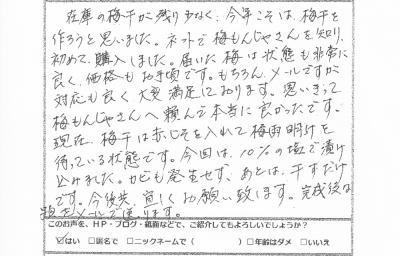 在庫の梅干が残り少なく、今年こそは、梅干を
作ろうと思いました。ネットで梅もんじゃさんを知り、
初めて、購入しました。届いた梅は状態も非常に
良く、価格もお手頃です。もちろん、メールですが
対応も良く大変満足しております。思いきって
梅もんじゃさんへ頼んで本当に良かったです。
現在、梅干は赤じそを入れて梅雨明けを
待っている状態です。今回は、10%の塩で漬け
込みました。カビも発生せず、あとは、干すだけ
です。今後共、宜しくお願い致します。完成後は
をメールで送ります。
このお声を、HP・ブログ・紙面などで、ご紹介してもよろしいでしょうか?
☑はい □匿名で □ニックネームで( ) □年齢はダメ □いいえ